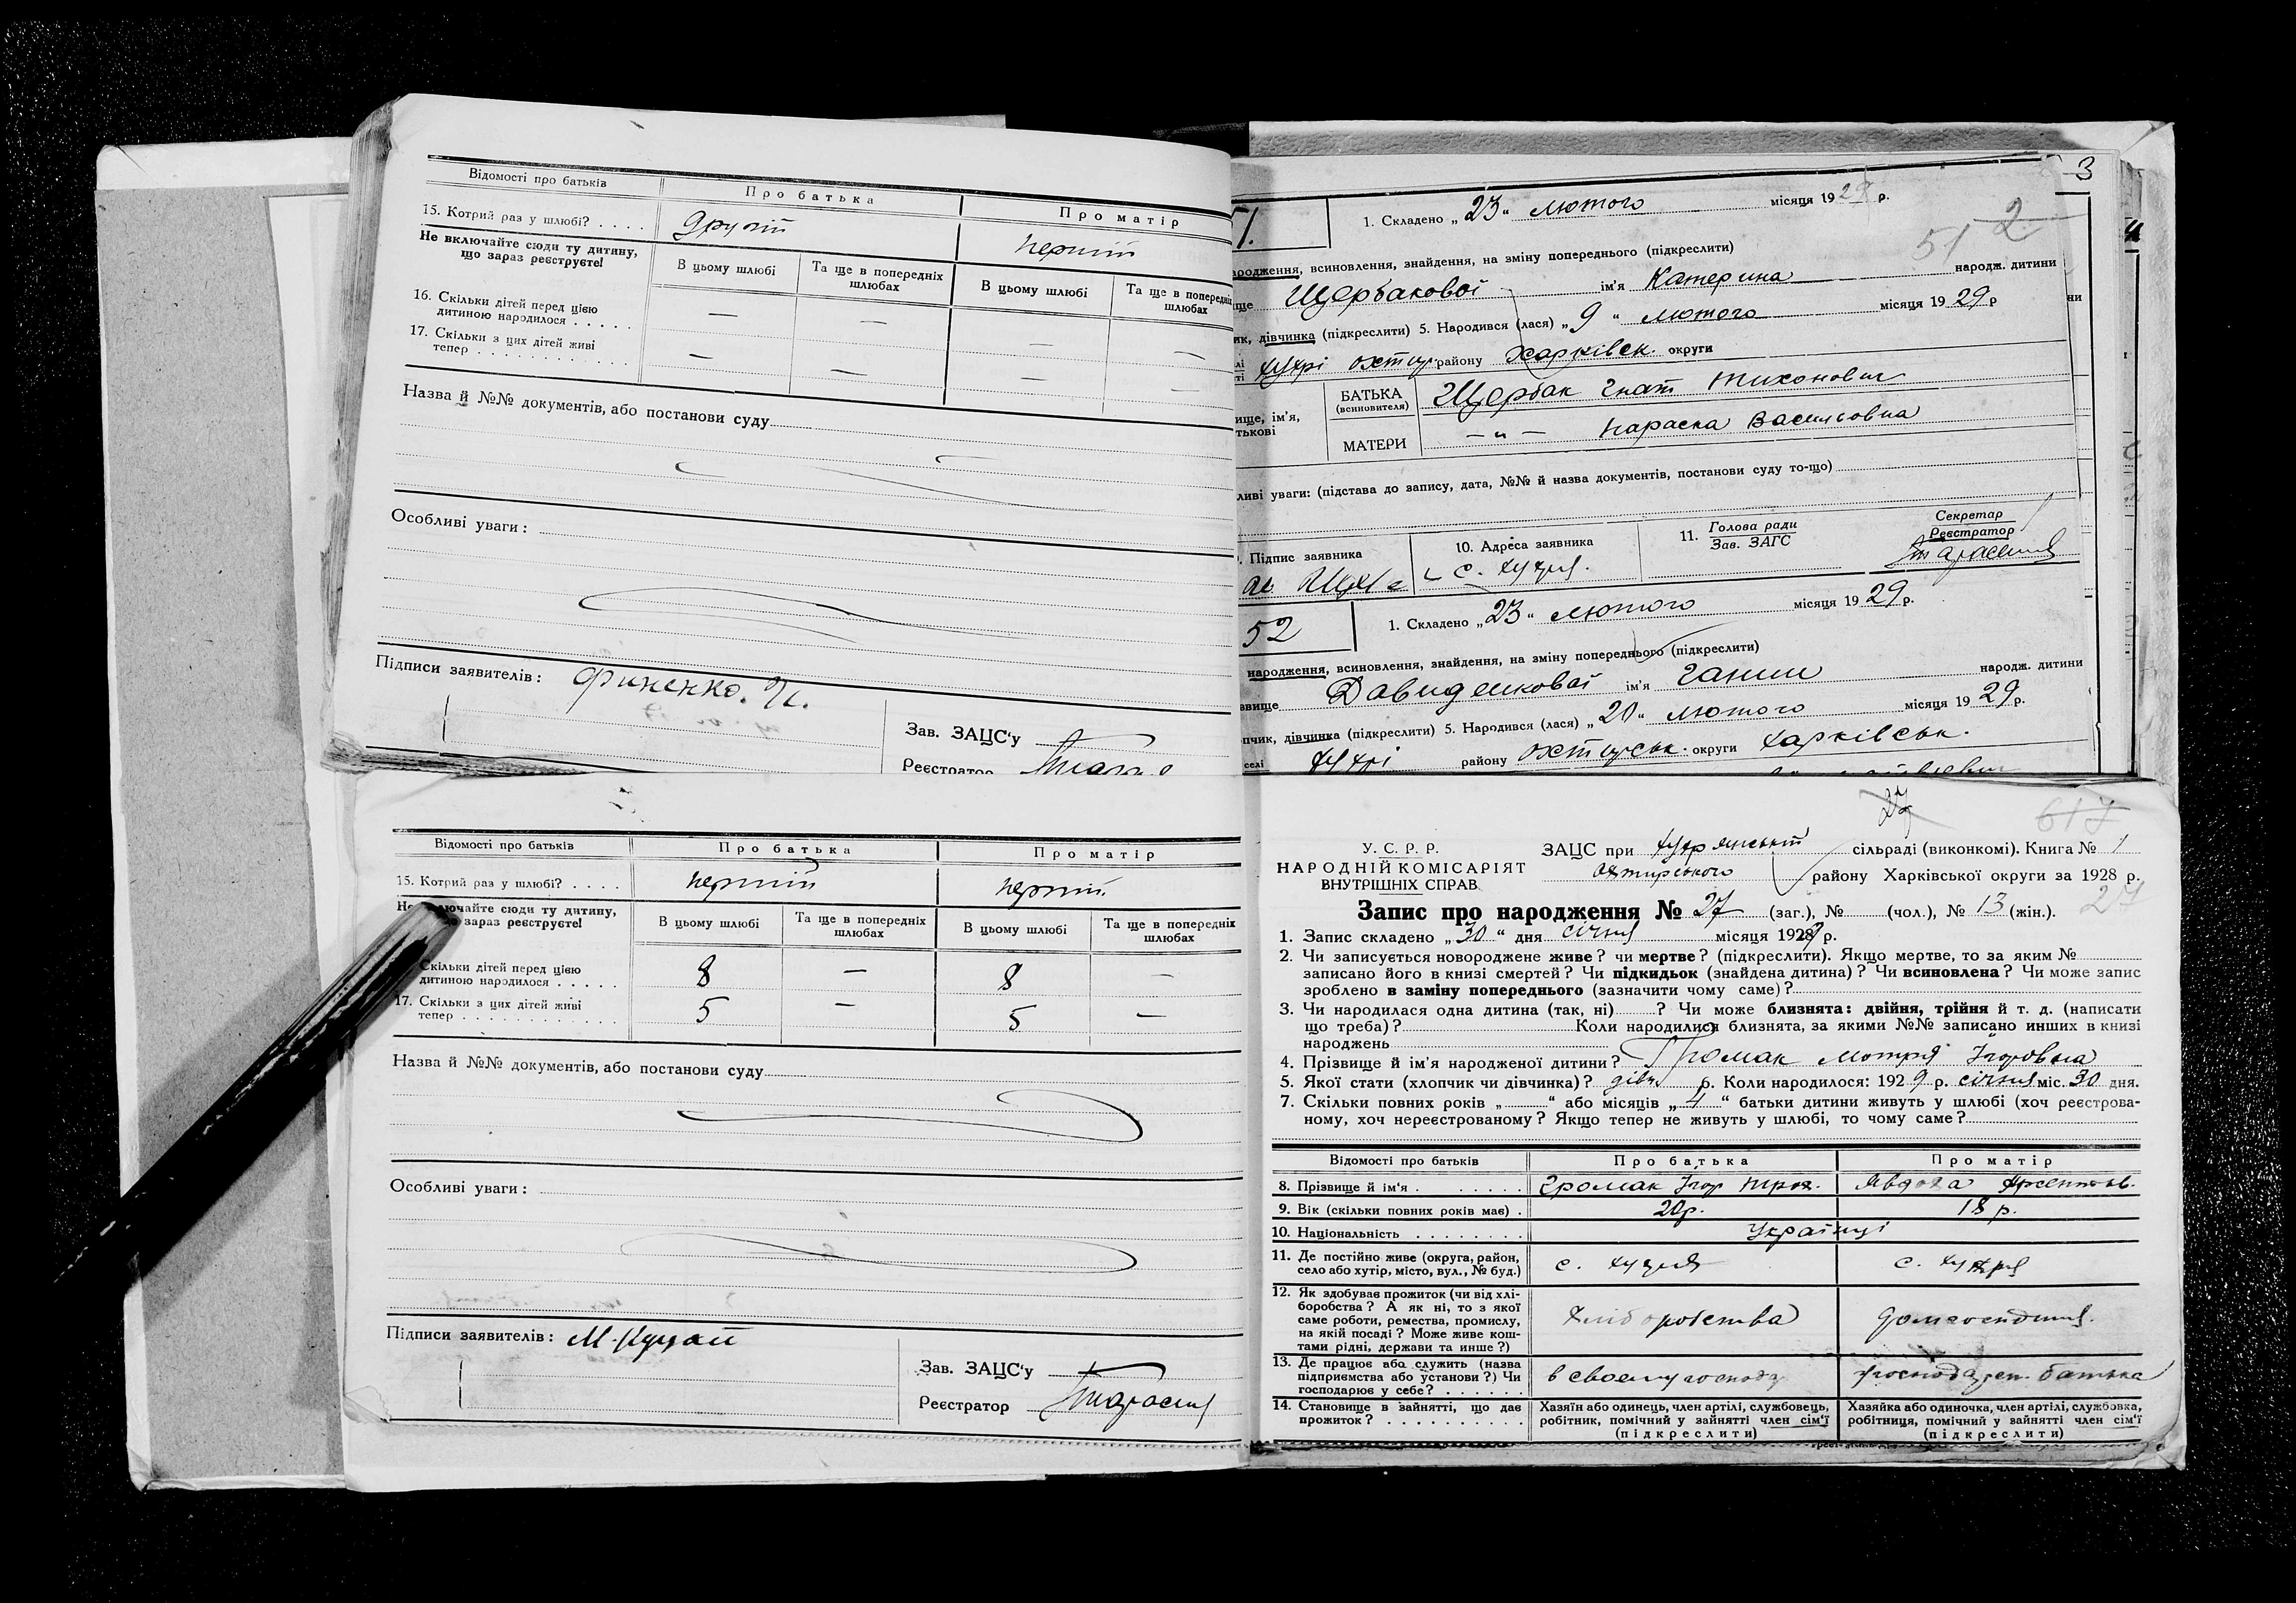 Відомості про батьків
Про батька
Про матір
15. Котрий раз у шлюбі? . . . .
другий
перший
Не включайте сюди ту дитину,
що зараз реєструєте!
В цьому шлюбі
Та ще в попередніх
шлюбах
В цьому шлюбі
Та ще в попередніх
шлюбах
16. Скільки дітей перед цією
дитиною народилося . . . . .
— — — —
17. Скільки з цих дітей живі
тепер . . . . . . . . . . . .
— — — —
Назва й №№ документів, або постанови суду
Особливі уваги:
Підписи заявителів: Финенко. И.
Зав. ЗАЦС'у
Реєстратор
3
51.
1. Складено „ 23 “ лютого місяця 19 р.
2.
51
народження, всиновлення, знайдення, на зміну попереднього (підкреслити)
Щербакової ім'я Катерина народж. дитини
дівчинка (підкреслити) 5. Народився (лася) „ 9 “ лютого місяця 19 29 р
району Харківськ. округи
БАТЬКА
(всиновителя)
Щербак Гнат Тихонович
МАТЕРИ
— „ — Параска Васильовна
уваги: (підстава до запису, дата, №№ й назва документів, постанови суду то-що)
Підпис заявника
10. Адреса заявника
11. Голова ради
Зав. ЗАГС
Секретар
Реєстратор
52
1. Складено „ 23 “ лютого місяця 19 29 р.
народження, всиновлення, знайдення, на зміну попереднього (підкреслити)
Давиденкової ім'я Ганни народж. дитини
дівчинка (підкреслити) 5. Народився (лася) „ 20 “ лютого місяця 19 29 р.
селі району Охтирськ. округи Харківськ.
Відомості про батьків
Про батька
Про матір
15. Котрий раз у шлюбі? . . . .
перший
перший
зараз реєструєте!
В цьому шлюбі
Та ще в попередніх
шлюбах
В цьому шлюбі
Та ще в попередніх
шлюбах
Скільки дітей перед цією
дитиною народилося . . . . .
8 — 8 —
17. Скільки з цих дітей живі
тепер . . . . . . . . . . . .
5 — 5 —
Назва й №№ документів, або постанови суду
Особливі уваги:
Підписи заявителів:
Зав. ЗАЦС'у
Реєстратор
27
617
У. С. Р. Р.
НАРОДНІЙ КОМІСАРІЯТ
ВНУТРІШНІХ СПРАВ
ЗАЦС при сільраді (виконкомі). Книга № 1
Охтирського району Харківської округи за 1928 р.
27
Запис про народження № 27 (заг.), № (чол.), № 13 (жін.).
1. Запис складено „ 30 “ дня січня місяця 1929 р.
2. Чи записується новороджене живе? чи мертве? (підкреслити). Якщо мертве, то за яким №
записано його в книзі смертей? Чи підкидьок (знайдена дитина)? Чи всиновлена? Чи може запис
зроблено в заміну попереднього (зазначити чому саме)?
3. Чи народилася одна дитина (так, ні)? Чи може близнята: двійня, трійня й т. д. (написати
що треба)? Коли народилися близнята, за якими №№ записано инших в книзі
народжень
4. Прізвище й ім'я народженої дитини? Громак Мотря Ігоровна
5. Якої стати (хлопчик чи дівчинка)? дівч 6. Коли народилося: 192 9 р. січня міс. 30 дня.
7. Скільки повних років „ “ або місяців „ 4 “ батьки дитини живуть у шлюбі (хоч реєстрова-
ному, хоч нереєстрованому? Якщо тепер не живуть у шлюбі, то чому саме?
Відомості про батьків
Про батька
Про матір
8. Прізвище й ім'я . . . . . .
Громак Ігор
Явдоха
9. Вік (скільки повних років має) .
20 р.
18 р.
10. Національність . . . . . . . .
Українці
11. Де постійно живе (округа, район,
село або хутір, місто, вул., № буд.)
с.
с.
12. Як здобуває прожиток (чи від хлі-
боробства? А як ні, то з якої
саме роботи, ремества, промислу,
на якій посаді? Може живе кош-
тами рідні, держави та инше?)
хліборобства
13. Де працює або служить (назва
підприємства або установи?) Чи
господарює у себе? . . . . . .
в своему господ
господар. батька
14. Становище в зайнятті, що дає
прожиток? . . . . . . . . . .
Хазяїн або одинець, член артілі, службовець,
робітник, помічний у зайнятті член сім'ї
(підкреслити)
Хазяйка або одиночка, член артілі, службовка,
робітниця, помічний у зайнятті член сім'ї
(підкреслити)